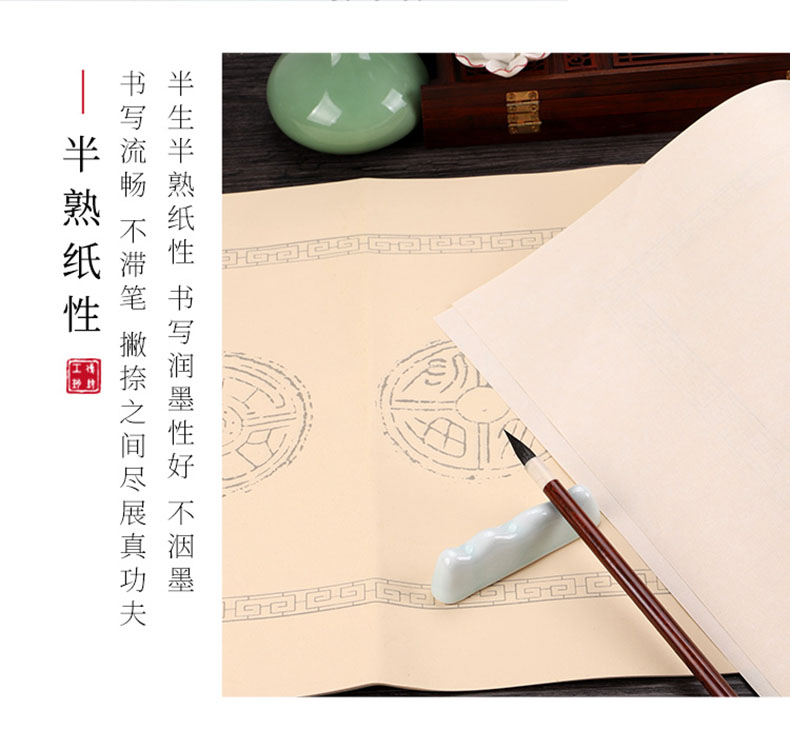 半生半熟纸性 书写润墨性好 不洇墨
书写流畅 不滞笔 撇捺之间尽展真功夫
半熟纸性